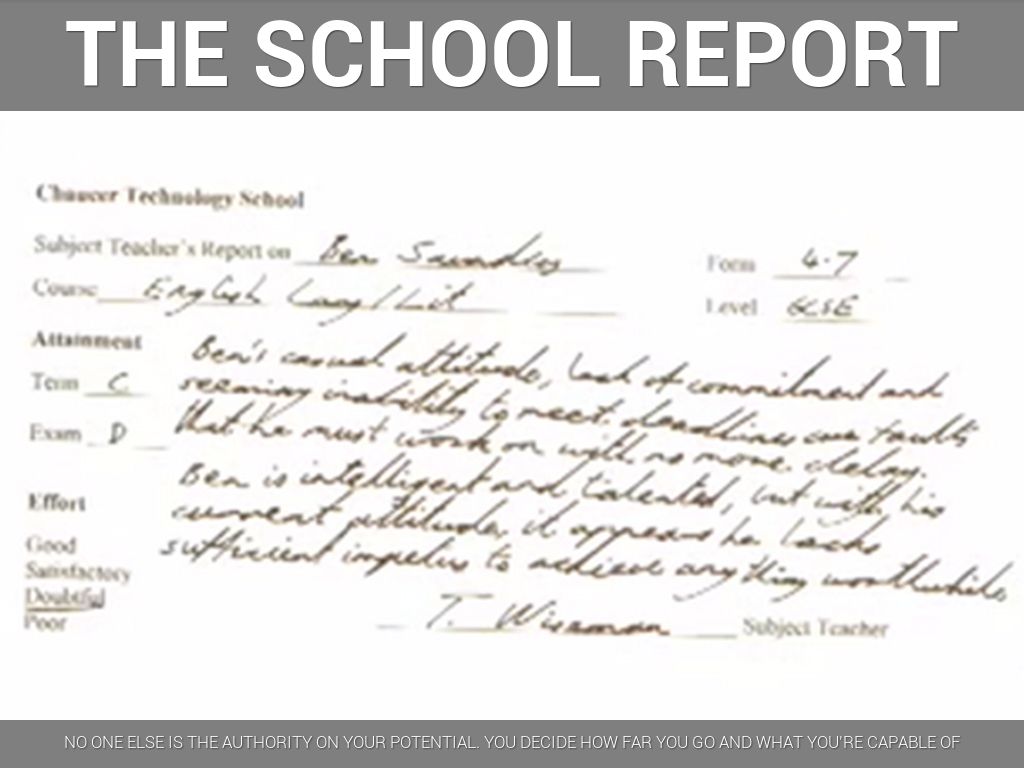 THE SCHOOL REPORT
Chaucer Technology School
Subject Teacher's Report on Ben Saunders
Form 4.7
Course English Lang/Lit
Level GCSE
Attainment
Term C
Exam D
Ben's casual attitude, lack of commitment and
seeming inability to meet deadlines are faults
that he must work on with no more delay.
Ben is intelligent and talented, but with his
current attitude, it appears he lacks
sufficient impetus to achieve anything worthwhile.
Effort
Good
Satisfactory
Doubtful
Poor
T. Wiseman Subject Teacher
NO ONE ELSE IS THE AUTHORITY ON YOUR POTENTIAL. YOU DECIDE HOW FAR YOU GO AND WHAT YOU'RE CAPABLE OF